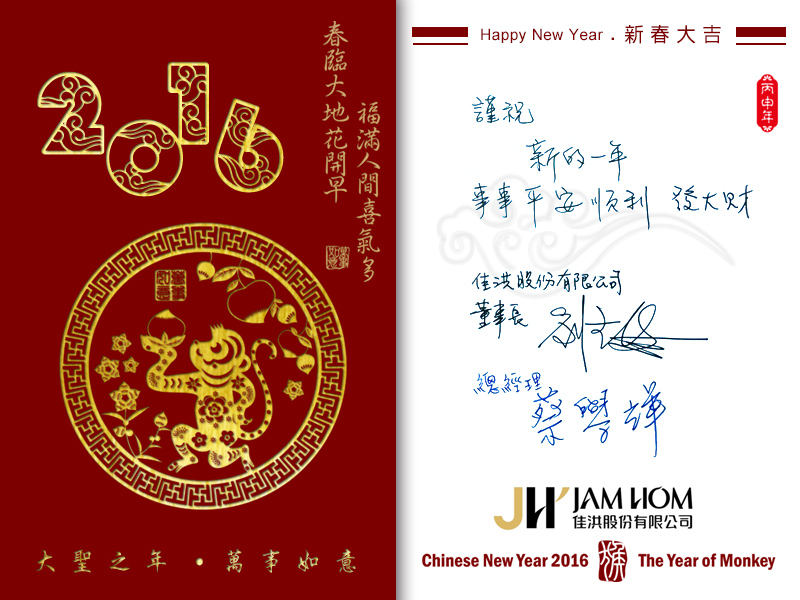 2016
春臨大地花開早
福滿人間喜氣多
萬事如意
大聖之年・萬事如意
Happy New Year . 新春大吉
丙申年
謹祝
新的一年
事事平安順利 發大財
佳洪股份有限公司
董事長
總經理
蔡學
JH JAM HOM
佳洪股份有限公司
Chinese New Year 2016 猴 The Year of Monkey